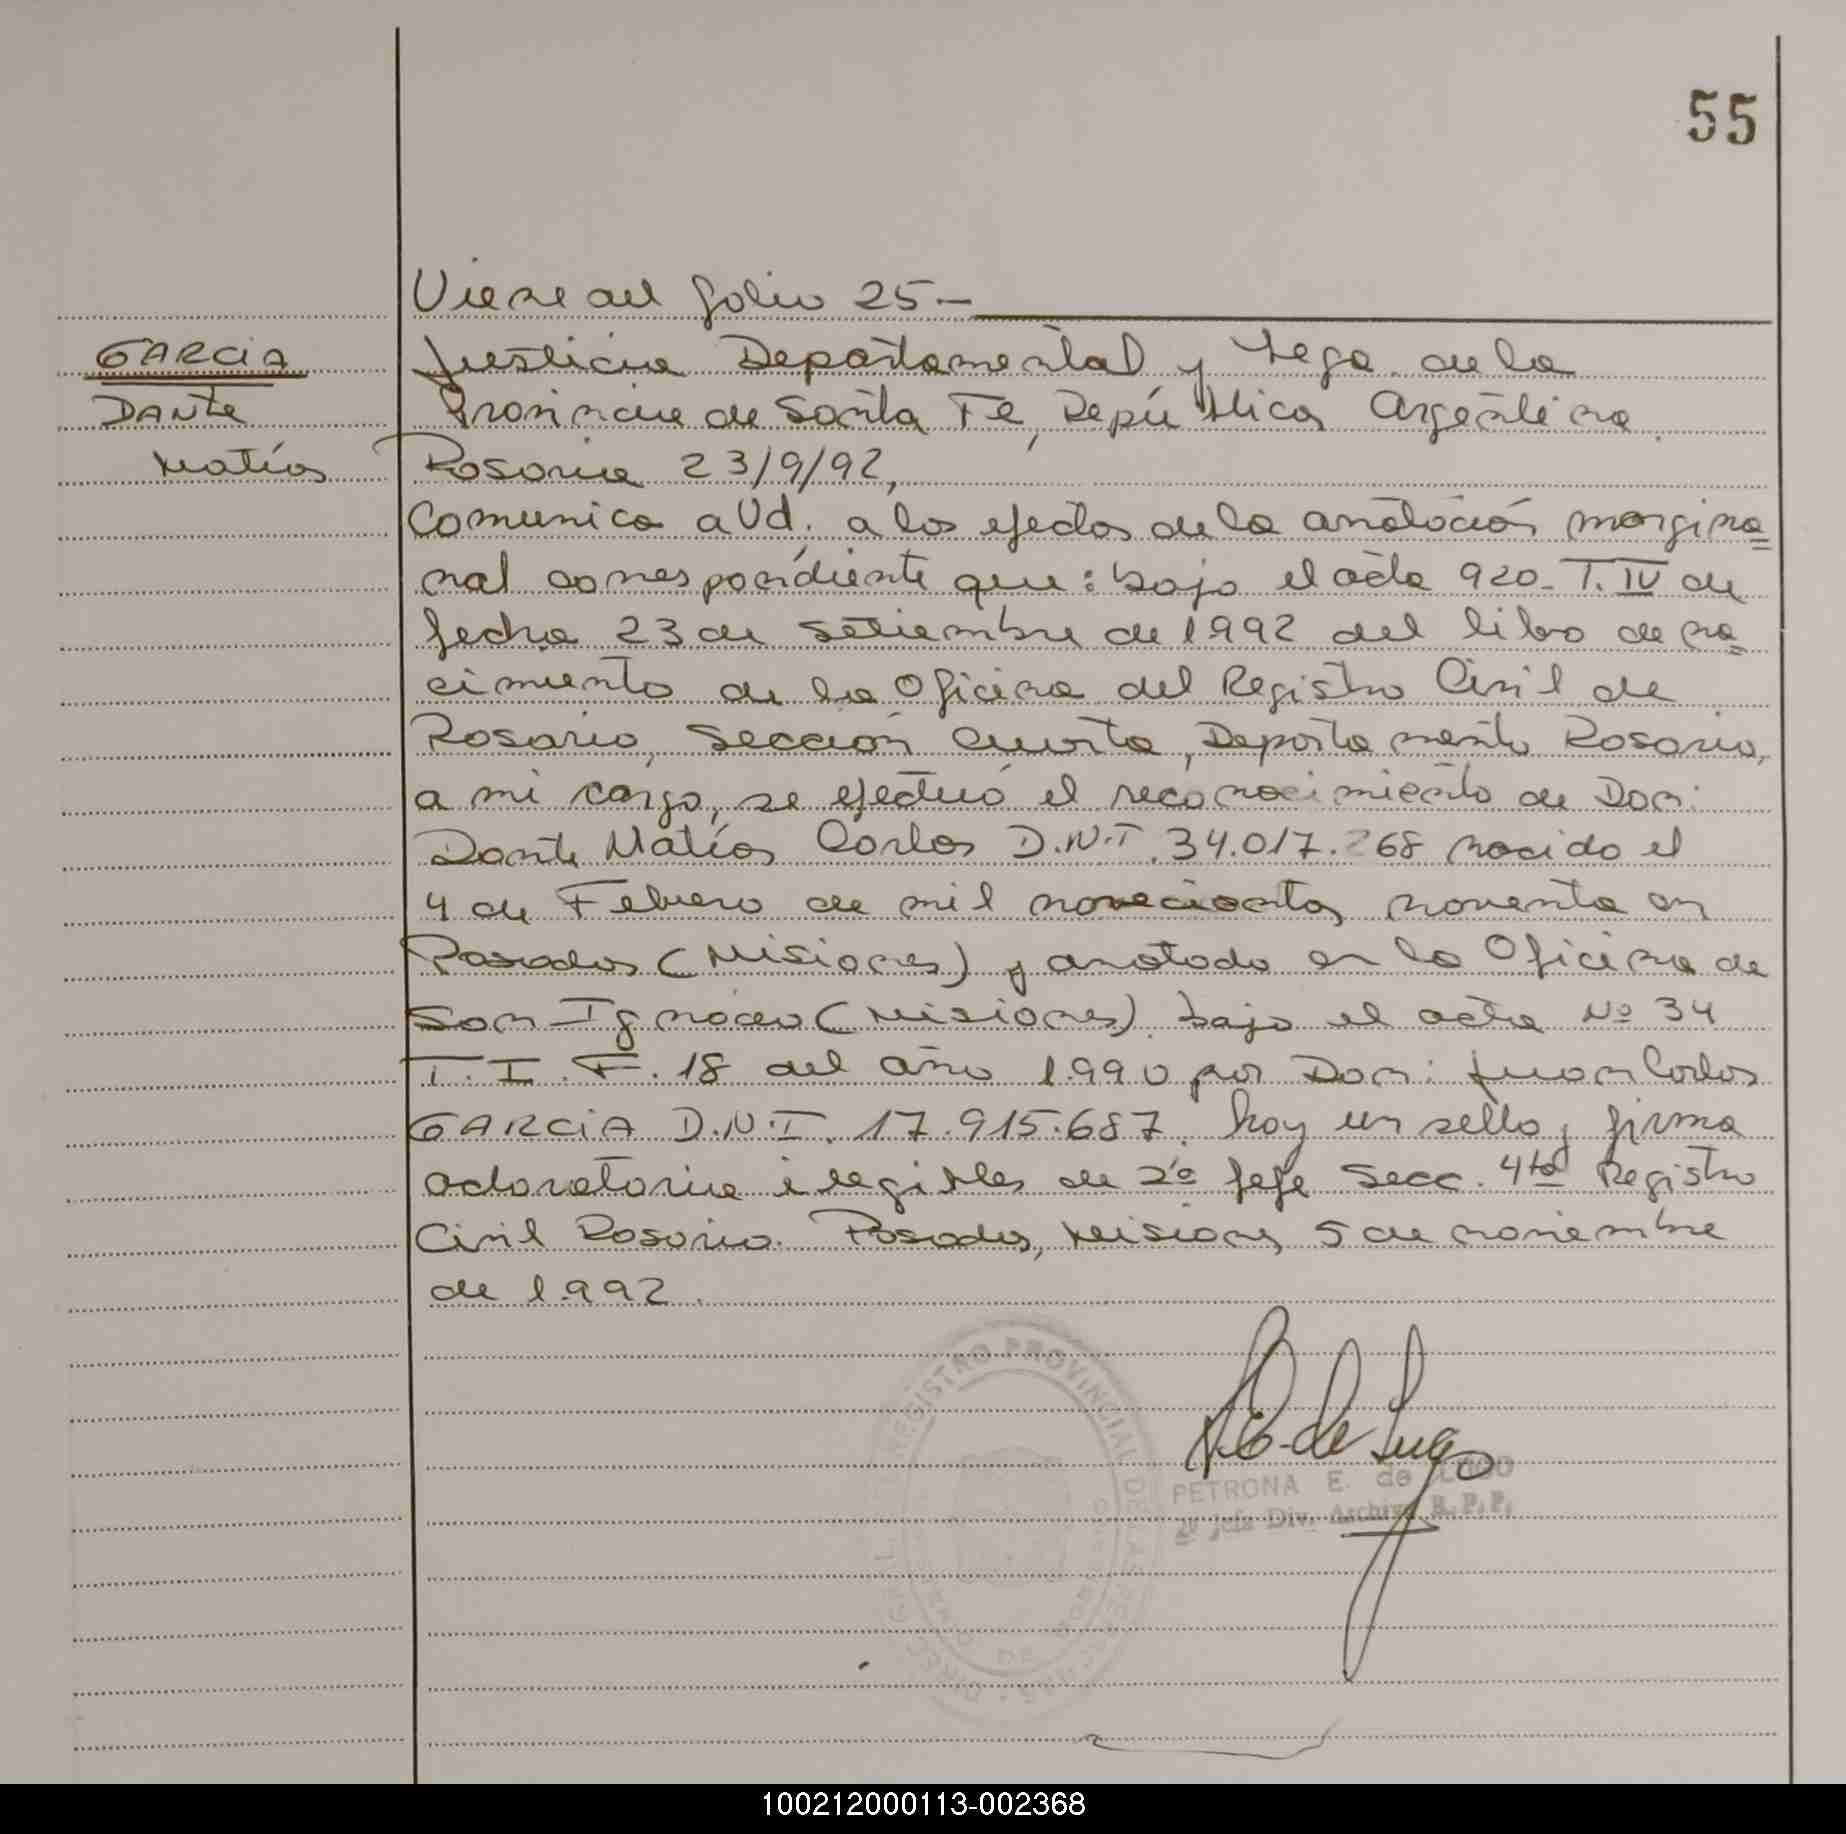 55
Viene del folio 25.-
GARCIA
Justicia Departamental y Lega. de la
DANTE
Provincia de Santa Fe, República Argentina.
Matías
Rosario 23/9/92,
Comunico a Ud. a los efectos de la anotación margina=
nal correspondiente que: bajo el acta 920- T. IV de
fecha 23 de Setiembre de 1992 del libro de na=
cimiento de la Oficina del Registro Civil de
Rosario, Sección Cuarta, Departamento Rosario,
a mi cargo, se efectuó el reconocimiento de Don:
Dante Matías Carlos D.N.I. 34.017.268 nacido el
4 de Febrero de mil novecientos noventa en
Posadas (Misiones) y anotado en la Oficina de
San Ignacio (Misiones) bajo el acta Nº 34
T. I. F. 18 del año 1990 por Don: Juan Carlos
GARCIA D.N.I. 17.915.687. hay un sello y firma
aclaratoria ilegibles de 2º Jefe Secc. 4ta Registro
Civil Rosario. Posadas, Misiones 5 de noviembre
de 1992.
REGISTRO PROVINCIAL DE LAS PERSONAS
PETRONA E. de LUGO
2º Jefa Div. Archivo R.P.P.
100212000113-002368